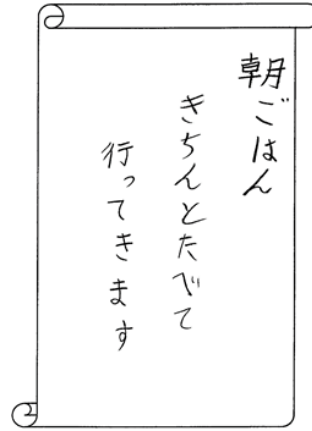 朝ごはん
きちんとたべて
行ってきます